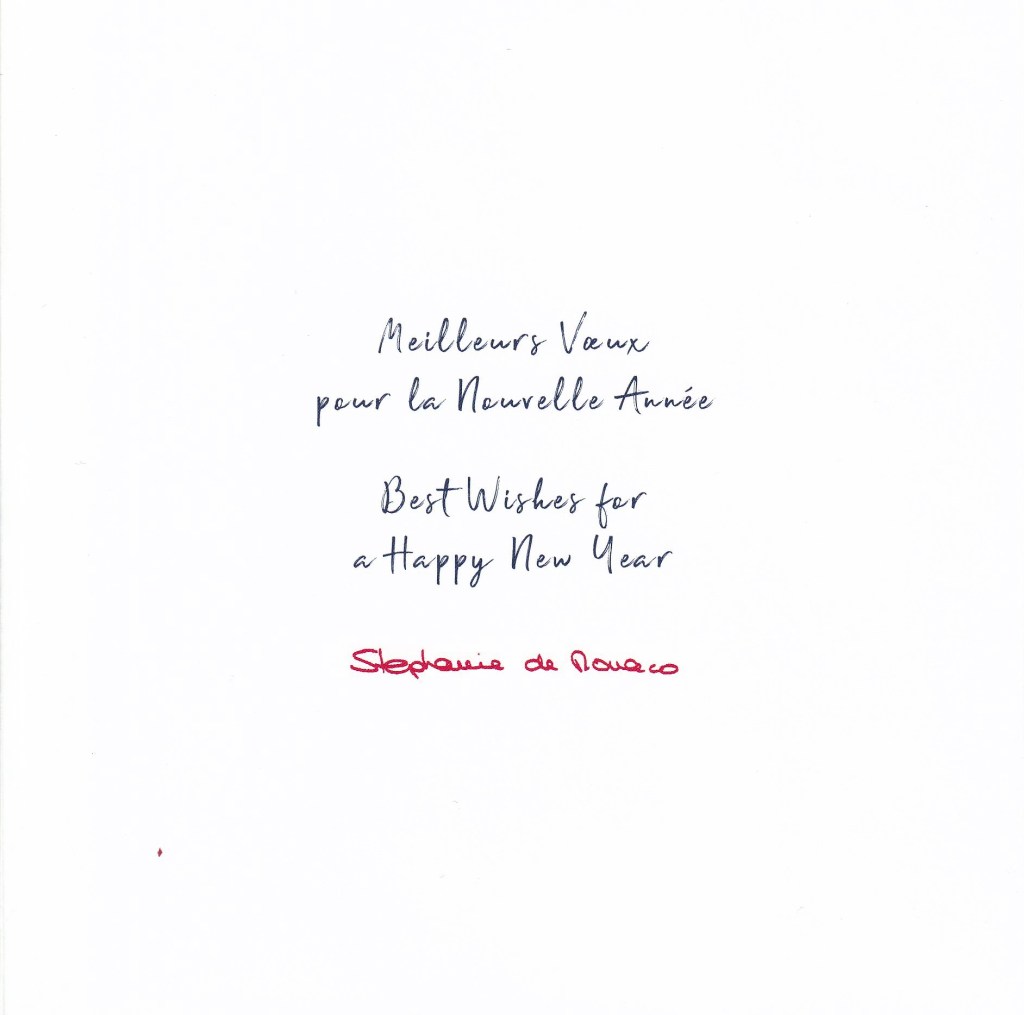 Meilleurs Vœux
pour la Nouvelle Année
Best Wishes for
a Happy New Year
Stephanie de Monaco